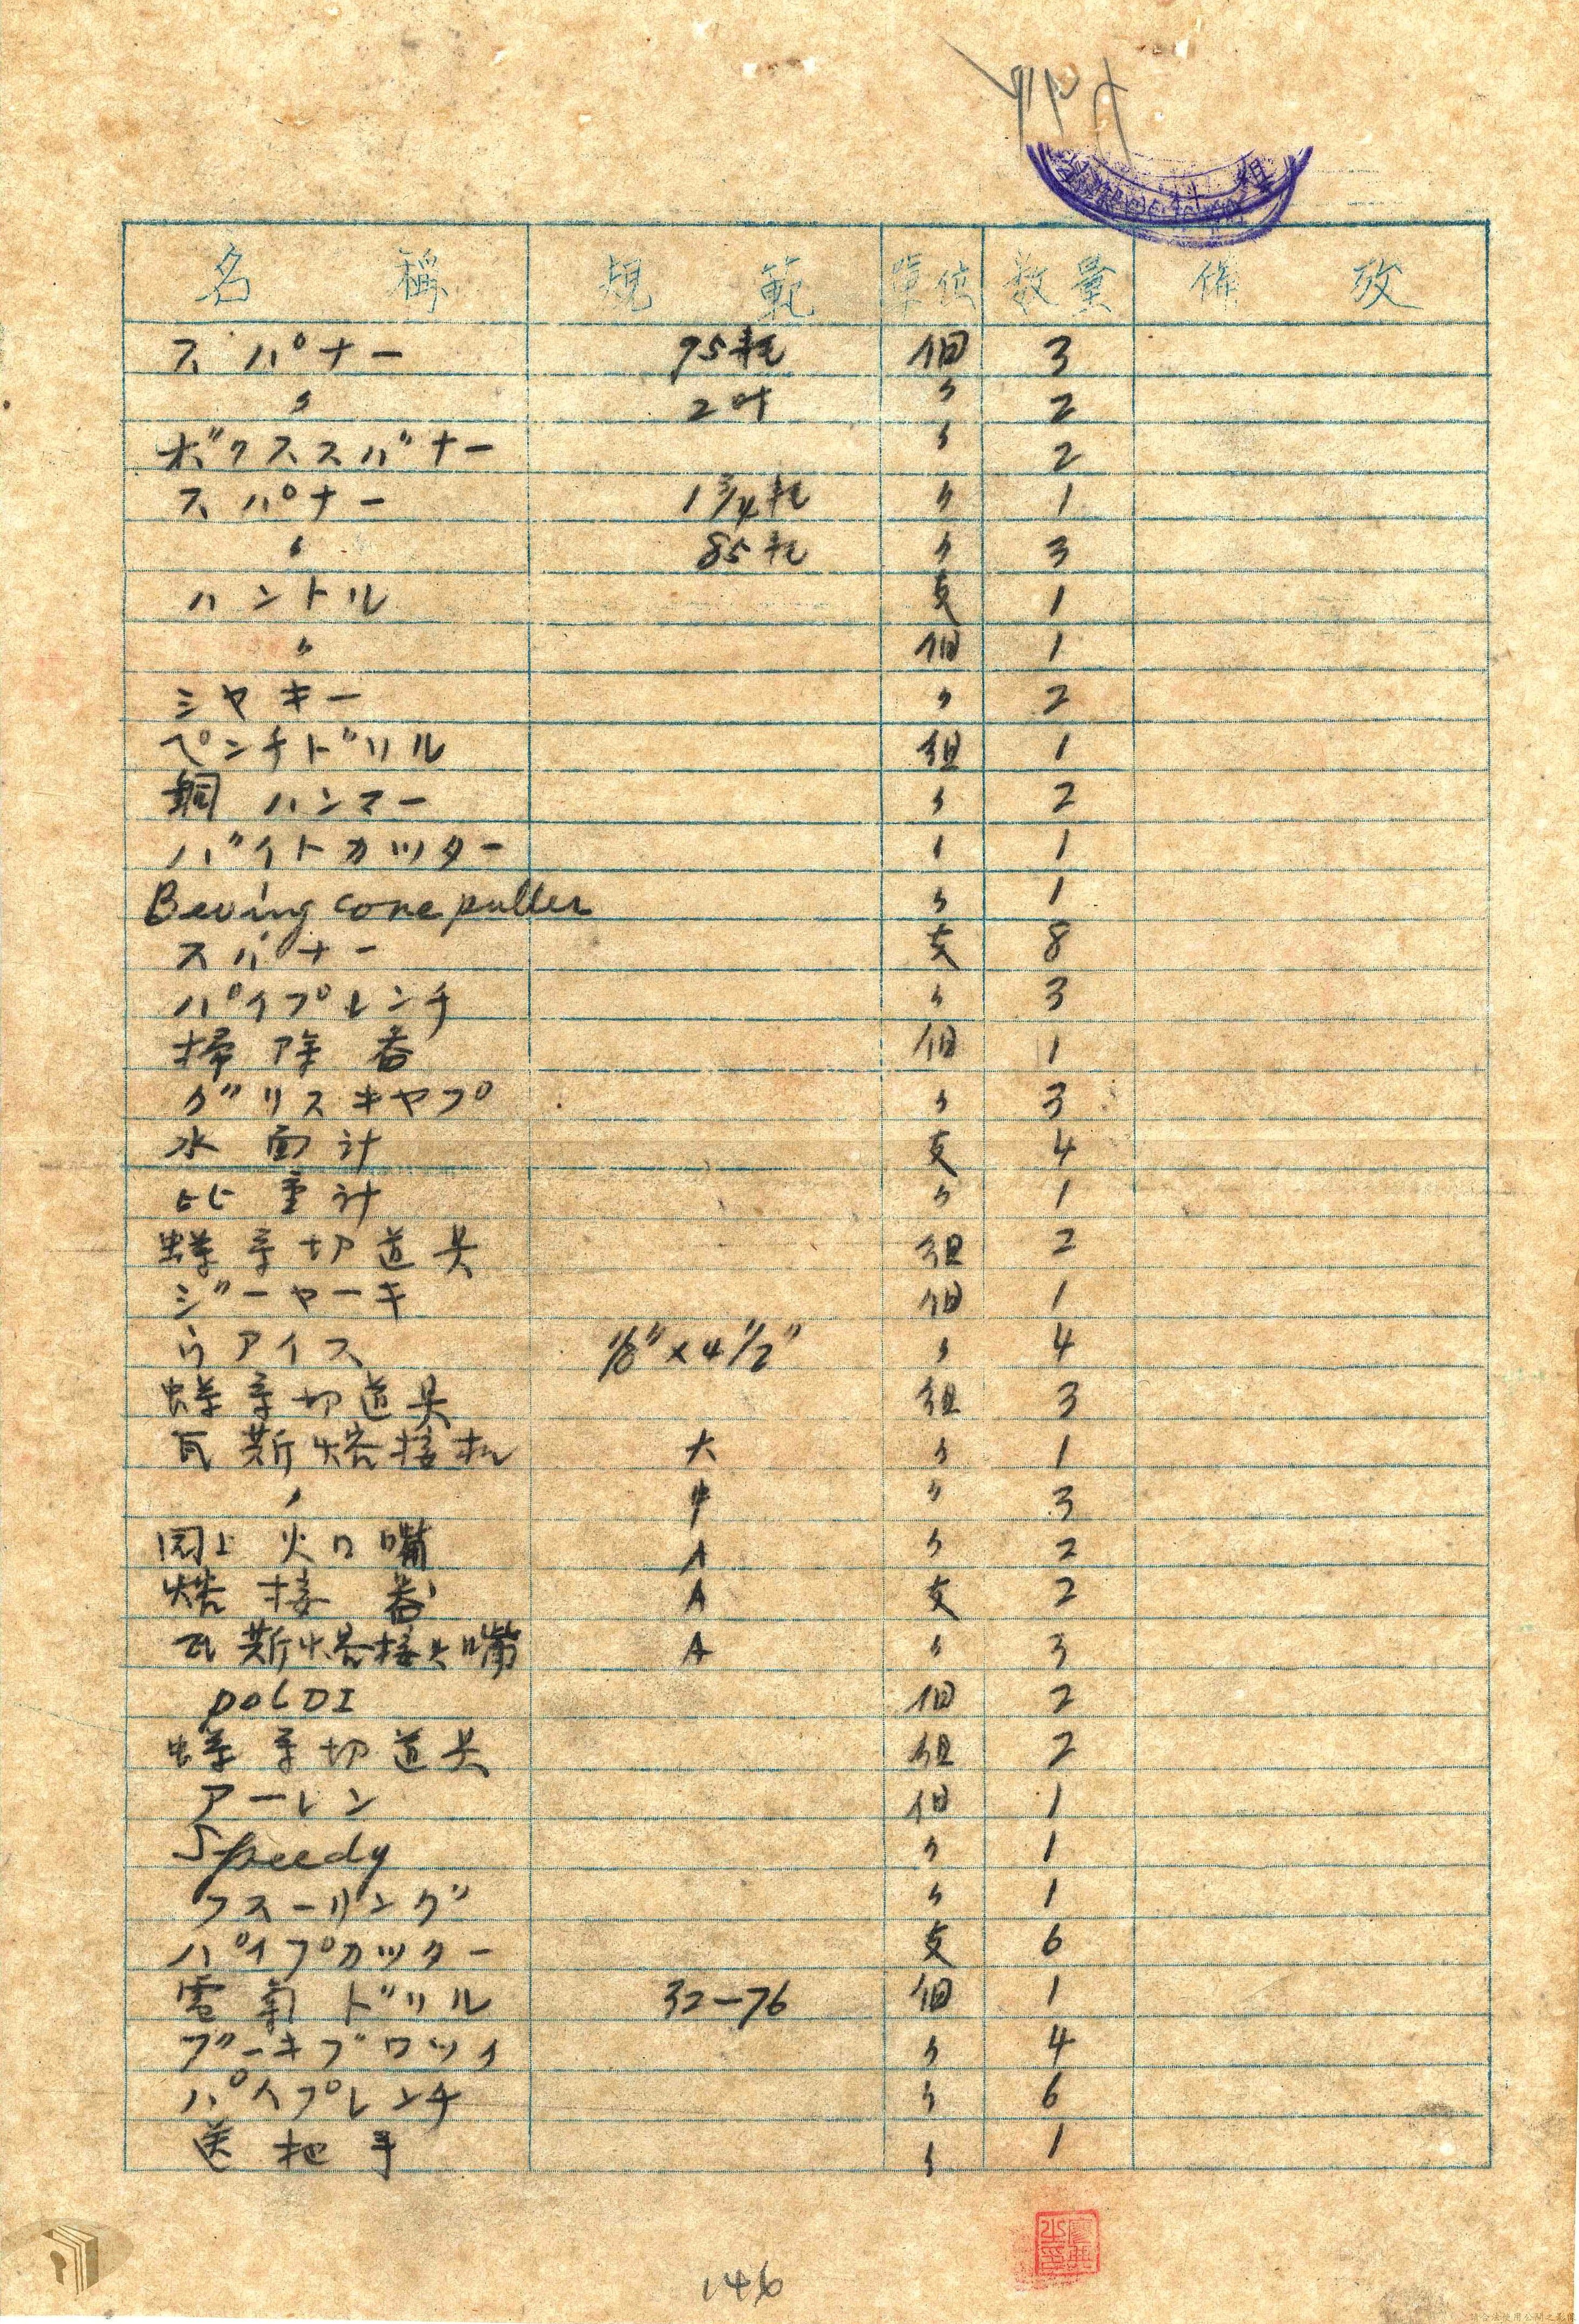 名 稱 規 範 單位 数量 備 攷
スパナー 95粍 個 3
〃 2吋 〃 2
ボクススバナー 〃 2
スパナー 1 3/4粍 〃 1
〃 85粍 〃 3
ハントル 支 1
〃 個 1
シヤキー 〃 2
ペンチドリル 組 1
銅ハンマー 〃 2
バイトカツター 〃 1
Beving cone puller 〃 1
スパナー 支 8
パイプレンチ 〃 3
掃除器 個 1
グリスキヤプ 〃 3
水面計 支 4
比重計 〃 1
螺子切道具 組 2
ジーヤーキ 個 1
ウアイス 1/8"×4 1/2" 〃 4
螺子切道具 組 3
瓦斯熔接机 大 〃 1
〃 中 〃 3
同上火口嘴 A 〃 2
熔接器 A 支 2
瓦斯熔接火嘴 A 〃 3
POLDI 個 2
螺子切道具 組 2
アーレン 個 1
Speedy 〃 1
フスーリング 〃 1
パイプカツター 支 6
電氣ドリル 32-76 個 1
ブーキブロツイ 〃 4
パイプレンチ 〃 6
送把手 〃 1
146